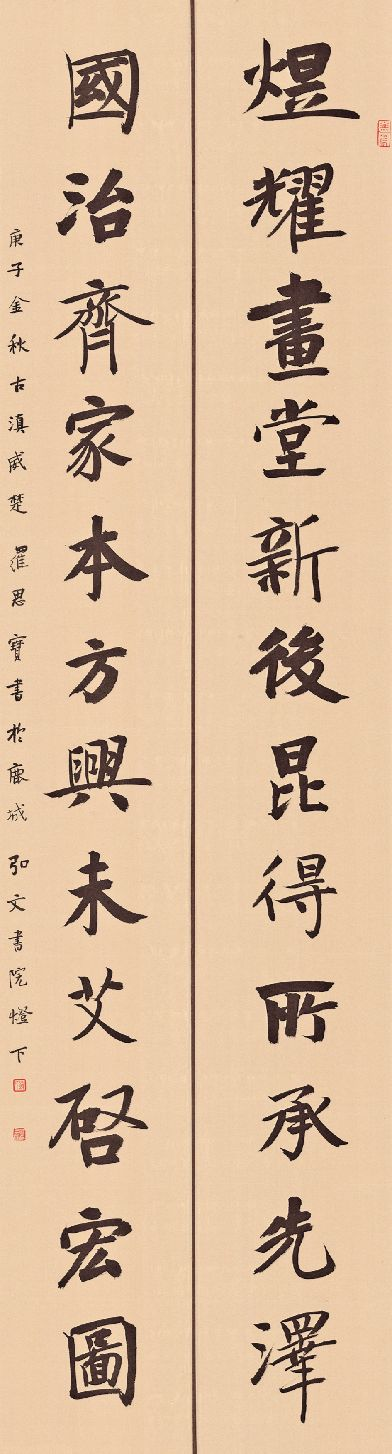 煜耀畫堂新後昆得所承先澤
國治齊家本方興未艾啓宏圖
庚子金秋古滇威楚羅思寶書於鹿城弘文書院燈下